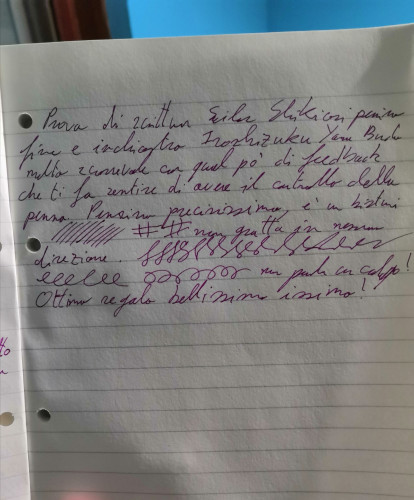 Prova di scrittura Sailor Shikiori pennino
fine e inchiostro Iroshizuku Yama Budo
molto scorrevole con quel po' di feedback
che ti fa sentire di avere il controllo della
penna. Pennino precisissimo, è un bisturi
## non gratta in nessuna
direzione.
non perde un colpo!
Ottimo regalo bellissimo issimo!